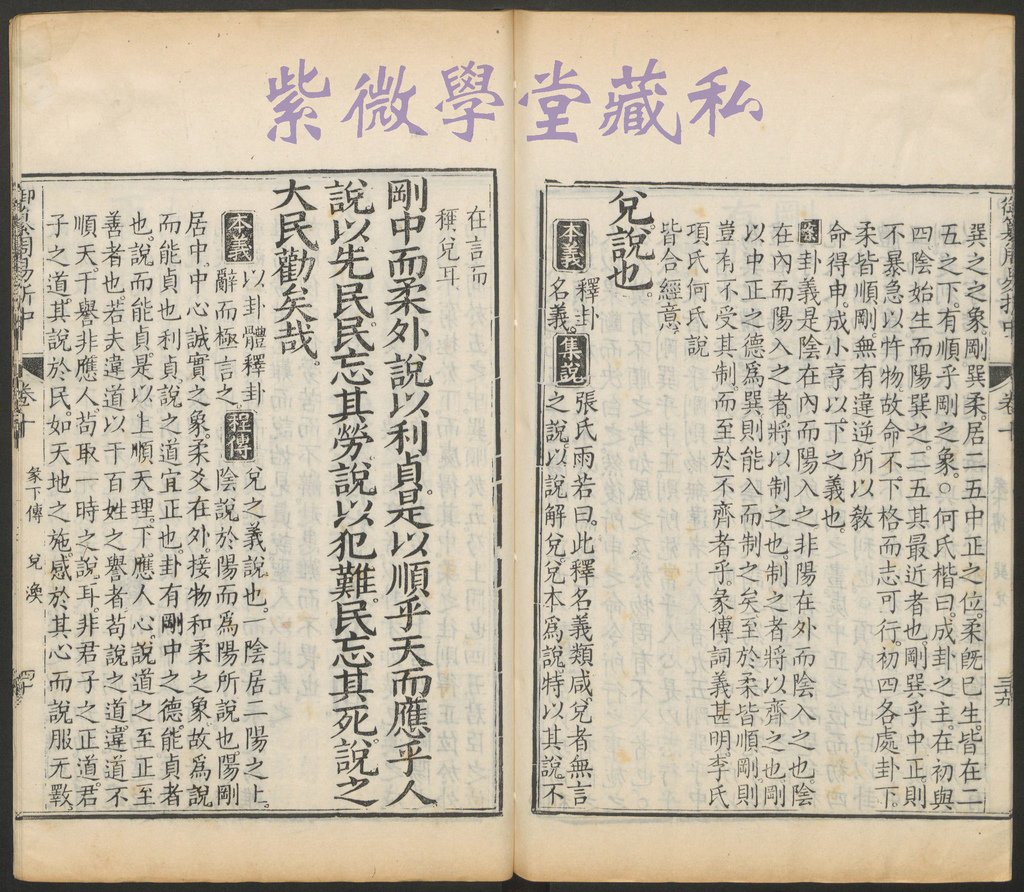 紫微學堂藏私
巽之之象剛巽柔居二五中正之位柔旣已生皆在二
五之下有順乎剛之象○何氏楷曰成卦之主在初與
四陰始生而陽巽之五其最近者也剛巽乎中正則
不暴急以忤物故命不下格而志可行初四各處卦下
柔皆順剛無有違逆所以敎
命得申成小亨以下之義也
案卦義是陰在內而陽入之非陽在外而陰入之也陰
在內而陽入之者將以制之也制之者將以齊之也剛
以中正之德爲巽則能入而制之矣至於柔皆順剛則
豈有不受其制而至於不齊者乎彖傳詞義甚明李氏
項氏何氏說
皆合經意
兌說也
本義釋卦
名義集說張氏雨若曰此釋名義類咸兌者無言
之說以說解兌兌本爲說特以其說不
卷十
三十九
在言而
稱兌耳
剛中而柔外說以利貞是以順乎天而應乎人
說以先民民忘其勞說以犯難民忘其死說之
大民勸矣哉
本義以卦體釋卦
辭而極言之程傳兌之義說也一陰居二陽之上
陰說於陽而爲陽所說也陽剛
居中中心誠實之象柔爻在外接物和柔之象故爲說
而能貞也利貞說之道宜正也卦有剛中之德能貞者
也說而能貞是以上順天理下應人心說道之至正至
善者也若夫違道以干百姓之譽者苟說之道違道不
順天干譽非應人苟取一時之說耳非君子之正道君
子之道其說於民如天地之施感於其心而說服无斁
卷十
彖下傳 兌 渙
四十